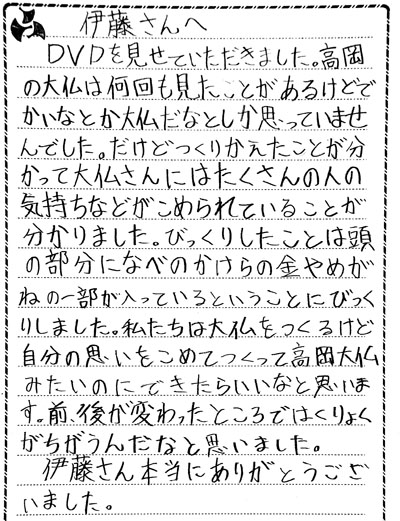 伊藤さんへ
DVDを見せていただきました。高岡
の大仏は何回も見たことがあるけどで
かいなとか大仏だなとしか思っていませ
んでした。だけどつくりかえたことが分
かって大仏さんにはたくさんの人の
気持ちなどがこめられていることが
分かりました。びっくりしたことは頭
の部分になべのかけらの金やめが
ねの一部が入っているということにびっく
りしました。私たちは大仏をつくるけど
自分の思いをこめてつくって高岡大仏
みたいのにできたらいいなと思いま
す。前、後が変わったところではくりょく
がちがうんだなと思いました。
伊藤さん本当にありがとうござ
いました。